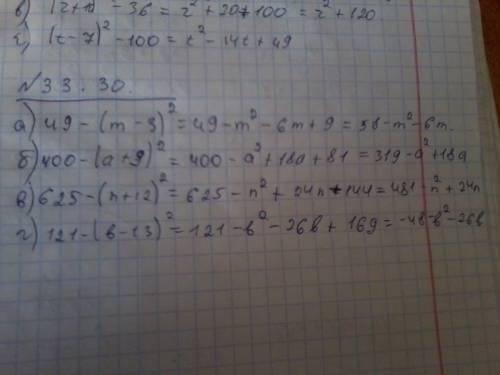 в) (z+10)² - 36 = z² + 20z + 100 = z² + 120
г) (t - 7)² - 100 = t² - 14t + 49
№33.30.
а) 49 - (m - 3)² = 49 - m² - 6m + 9 = 58 - m² - 6m.
б) 400 - (a + 9)² = 400 - a² + 18a + 81 = 319 - a² + 18a
в) 625 - (n + 12)² = 625 - n² + 24n + 144 = 481 - n² + 24n
г) 121 - (b - 13)² = 121 - b² - 26b + 169 = -48 - b² - 26b